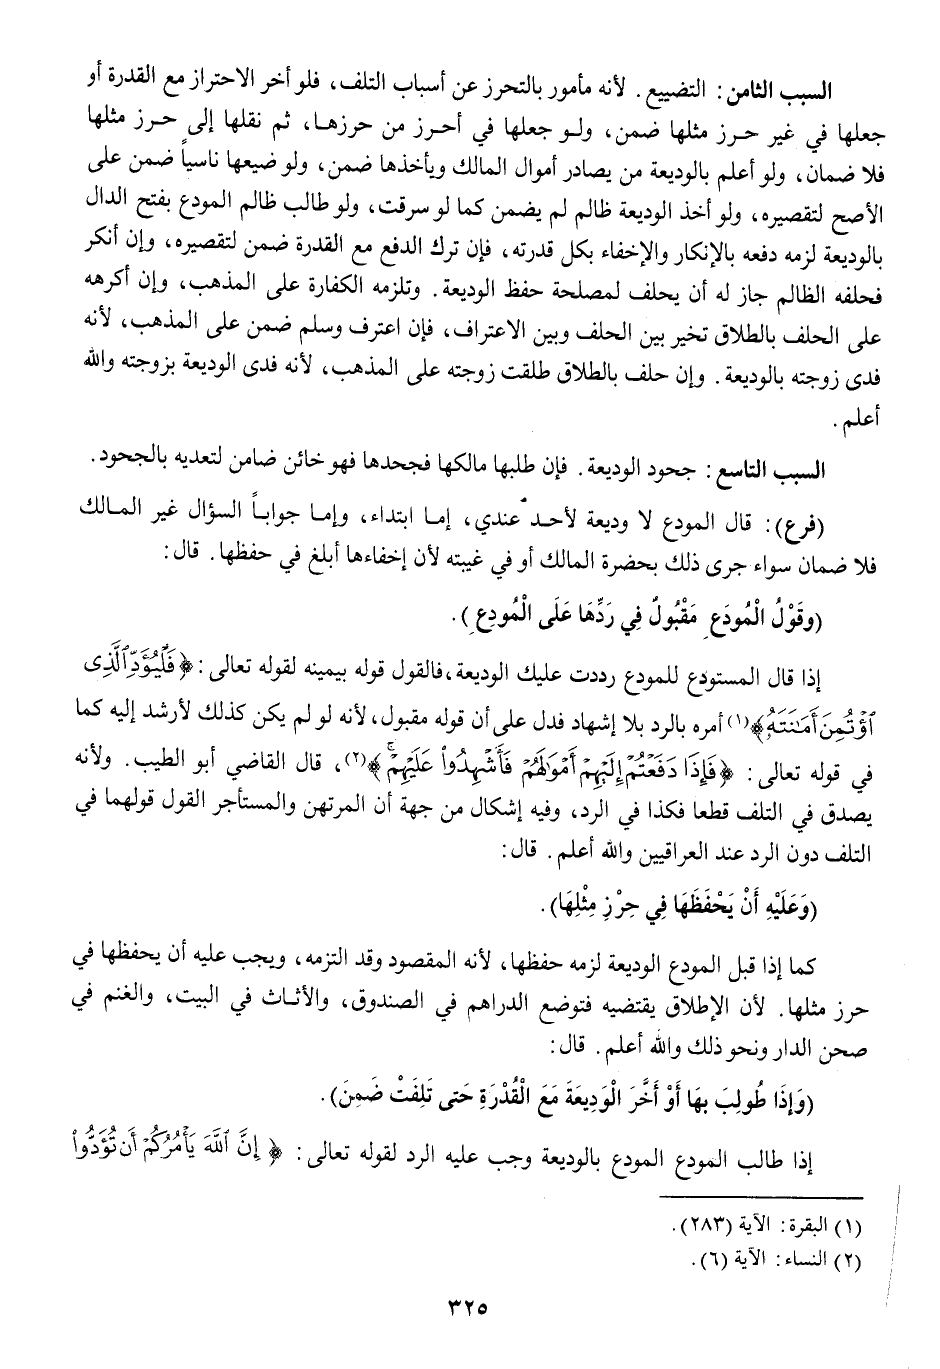 السبب الثامن: التضييع. لأنه مأمور بالتحرز عن أسباب التلف، فلو أخر الاحتراز مع القدرة أو
جعلها في غير حرز مثلها ضمن، ولو جعلها في أحرز من حرزها، ثم نقلها إلى حرز مثلها
فلا ضمان، ولو أعلم بالوديعة من يصادر أموال المالك ويأخذها ضمن، ولو ضيعها ناسياً ضمن على
الأصح لتقصيره، ولو أخذ الوديعة ظالم لم يضمن كما لو سرقت، ولو طالب ظالم المودع بفتح الدال
بالوديعة لزمه دفعه بالإنكار والإخفاء بكل قدرته، فإن ترك الدفع مع القدرة ضمن لتقصيره، وإن أنكر
فحلفه الظالم جاز له أن يحلف لمصلحة حفظ الوديعة. وتلزمه الكفارة على المذهب، وإن أكرهه
على الحلف بالطلاق تخير بين الحلف وبين الاعتراف، فإن اعترف وسلم ضمن على المذهب، لأنه
فدى زوجته بالوديعة. وإن حلف بالطلاق طلقت زوجته على المذهب، لأنه فدى الوديعة بزوجته والله
أعلم.
السبب التاسع: جحود الوديعة. فإن طلبها مالكها فجحدها فهو خائن ضامن لتعديه بالجحود.
(فرع): قال المودع لا وديعة لأحد عندي، إما ابتداء، وإما جواباً السؤال غير المالك
فلا ضمان سواء جرى ذلك بحضرة المالك أو في غيبته لأن إخفاءها أبلغ في حفظها. قال:
(وَقَوْلُ الْمُودَعِ مَقْبُولٌ فِي رَدِّهَا عَلَى الْمُودِعِ).
إذا قال المستودع للمودع رددت عليك الوديعة، فالقول قوله بيمينه لقوله تعالى: ﴿فَلْيُؤَدِّ ٱلَّذِى
ٱؤْتُمِنَ أَمَـٰنَتَهُۥ﴾(١) أمره بالرد بلا إشهاد فدل على أن قوله مقبول، لأنه لو لم يكن كذلك لأرشد إليه كما
في قوله تعالى: ﴿فَإِذَا دَفَعْتُمْ إِلَيْهِمْ أَمْوَٰلَهُمْ فَأَشْهِدُوا۟ عَلَيْهِمْ ۚ﴾(٢)، قال القاضي أبو الطيب. ولأنه
يصدق في التلف قطعا فكذا في الرد، وفيه إشكال من جهة أن المرتهن والمستأجر القول قولهما في
التلف دون الرد عند العراقيين والله أعلم. قال:
(وَعَلَيْهِ أَنْ يَحْفَظَهَا فِي حِرْزِ مِثْلِهَا).
كما إذا قبل المودع الوديعة لزمه حفظها، لأنه المقصود وقد التزمه، ويجب عليه أن يحفظها في
حرز مثلها. لأن الإطلاق يقتضيه فتوضع الدراهم في الصندوق، والأثاث في البيت، والغنم في
صحن الدار ونحو ذلك والله أعلم. قال:
(وَإِذَا طُولِبَ بِهَا أَوْ أَخَّرَ الْوَدِيعَةَ مَعَ الْقُدْرَةِ حَتى تَلِفَتْ ضَمِنَ).
إذا طالب المودع المودع بالوديعة وجب عليه الرد لقوله تعالى: ﴿ إِنَّ ٱللَّهَ يَأْمُرُكُمْ أَن تُؤَدُّوا۟
(١) البقرة: الآية (٢٨٣).
(٢) النساء: الآية (٦).
٣٢٥